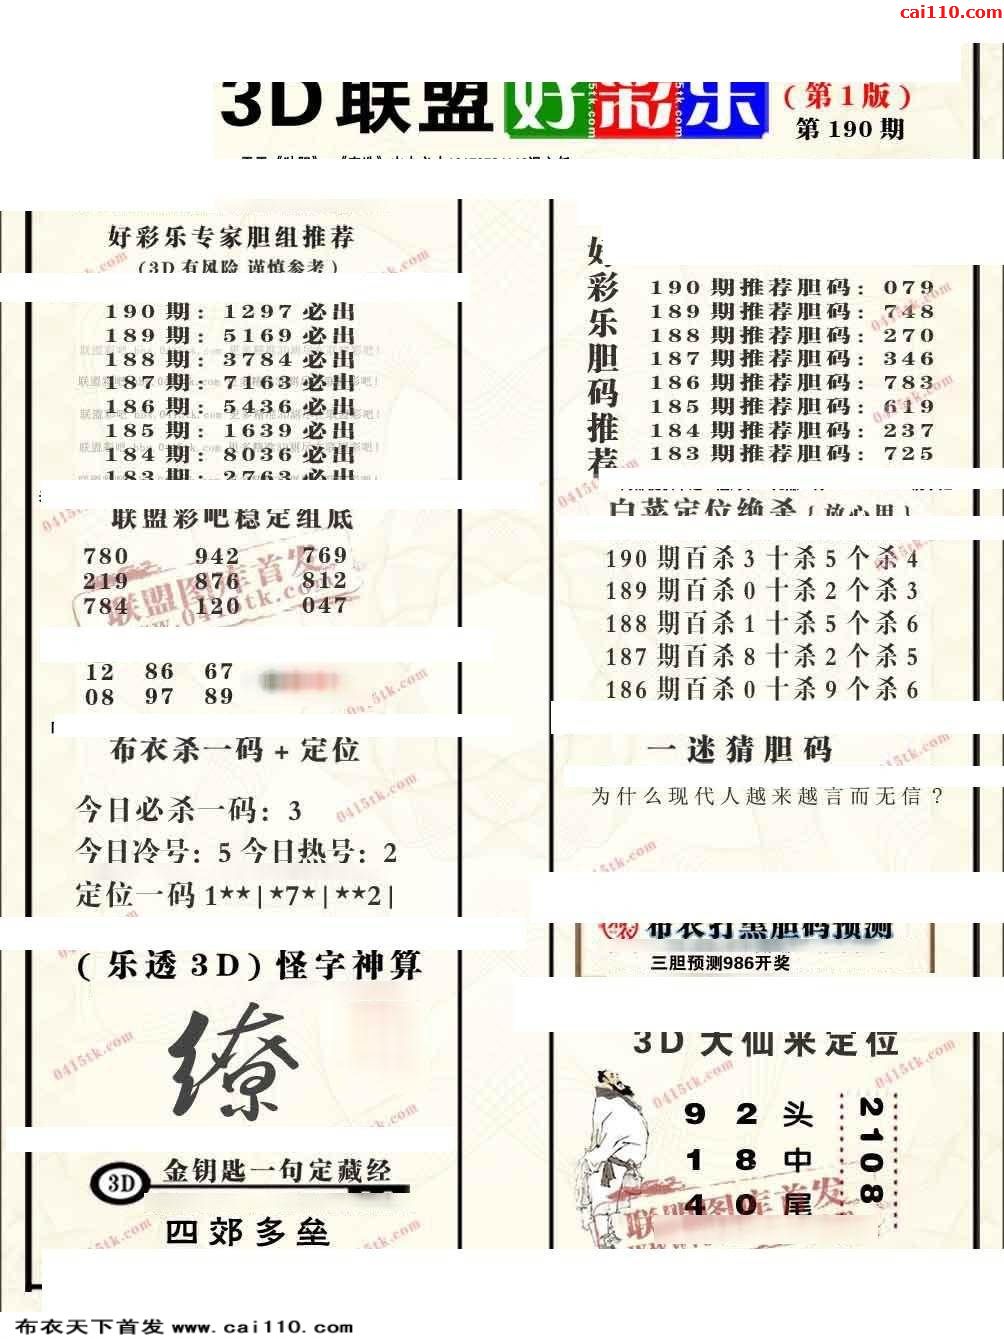 cai110.com
3D联盟好彩乐(第1版)
第190期
好彩乐专家胆组推荐
(3D有风险 谨慎参考)
190期: 1297必出
189期: 5169必出
188期: 3784必出
187期: 7163必出
186期: 5436必出
185期: 1639必出
184期: 8036必出
183期: 2763必出
联盟彩吧稳定组底
780 942 769
219 876 812
784 120 047
联盟图库首发
12 86 67
08 97 89
布衣杀一码+定位
今日必杀一码: 3
今日冷号: 5 今日热号: 2
定位一码1**|*7*|**2|
(乐透3D)怪字神算
缭
3D 金钥匙一句定藏经
四郊多垒
好彩乐胆码推荐
190期推荐胆码: 079
189期推荐胆码: 748
188期推荐胆码: 270
187期推荐胆码: 346
186期推荐胆码: 783
185期推荐胆码: 619
184期推荐胆码: 237
183期推荐胆码: 725
白菜定位绝杀{放心用}
190期百杀3十杀5个杀4
189期百杀0十杀2个杀3
188期百杀1十杀5个杀6
187期百杀8十杀2个杀5
186期百杀0十杀9个杀6
一迷猜胆码
为什么现代人越来越言而无信?
布衣打黑胆码预测
三胆预测986开奖
3D大仙来定位
9 2头
1 8中
4 0尾
2108
联盟图库首发
0415tk.com
布衣天下首发 www.cai110.com